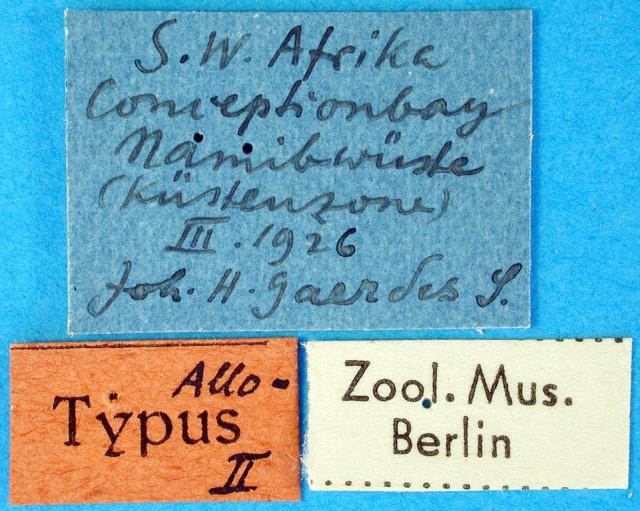 S.W. Afrika
Conceptionbay
Namibwüste
(Küstenzone)
III. 1926
Joh. H. Gaerdes S.
Allo-
Typus
II
Zool. Mus.
Berlin